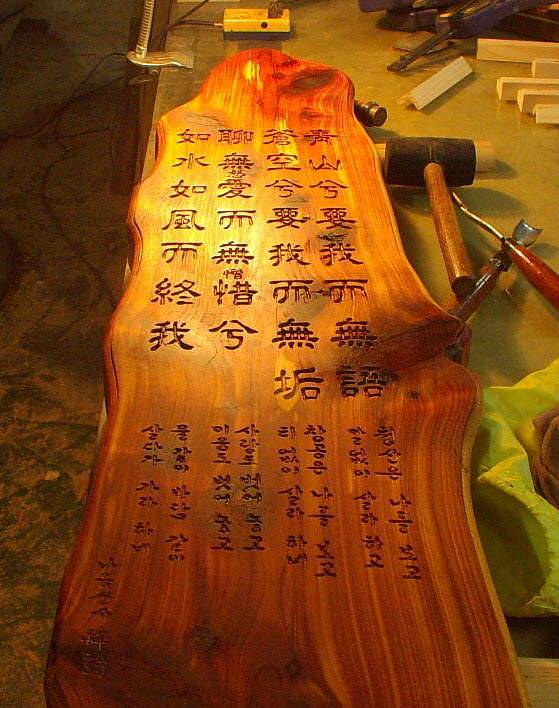 青山兮要我而無語
蒼空兮要我而無垢
聊無愛而無憎惜兮
如水如風而終我
청산은 나를 보고
말 없이 살라 하고
창공은 나를 보고
티 없이 살라 하네
사랑도 벗어 놓고
미움도 벗어 놓고
물 같이 바람 같이
살다가 가라 하네
나옹선사 禪詩